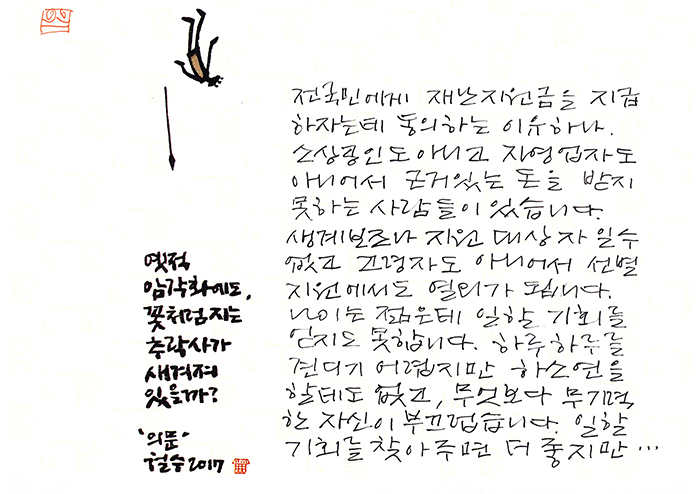 옛적
암각화에도,
꽃처럼지는
추락사가
새겨져
있을까?
"의문"
철수2017
전국민에게 재난지원금을 지급
하자는데 동의하는 이유하나.
소상공인도아니고 자영업자도
아니어서 근거있는 돈을 받지
못하는 사람들이있습니다.
생계보조나 지원 대상자일수
없고 고령자도 아니어서 선별
지원에서도 열외가 됩니다.
나이는 젊은데 일할 기회를
얻지도 못합니다. 하루하루를
견디기 어렵지만 하소연을
할데도 없고, 무엇보다 무기력
한 자신이 부끄럽습니다. 일할
기회를 찾아주면 더 좋지만…